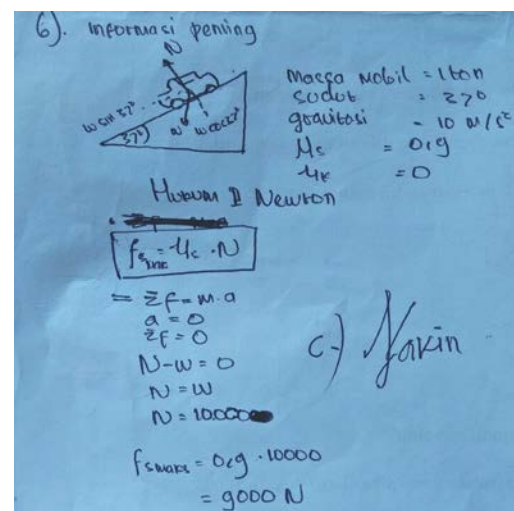 6). informasi penting
N
w sin 37° w cos 37°
37°) w
massa Mobil = 1 ton
sudut = 370
gravitasi = 10 m/s²
μs = 0,9
μk = 0
Hukum II Newton
fs mak = μs . N
= Σf = m.a
a = 0
Σf = 0
N-w = 0
N = W
N = 10.000
c.) Yakin
fsmaks = 0,9 . 10000
= 9000 N